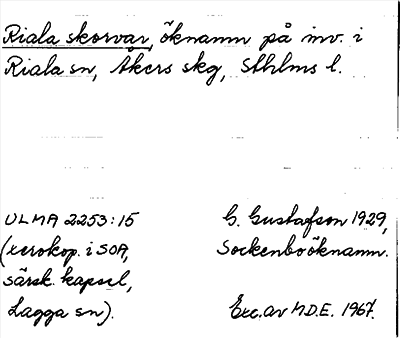 Riala skorvar, öknamn på inv. i
Riala sn, Åkers skg, Sthlms l.
ULMA 2253:15
(xerokop. i SOA,
särsk. kapsel,
Lagga sn).
G. Gustafson 1929,
Sockenboöknamn.
Exc. av M.D.E. 1967.